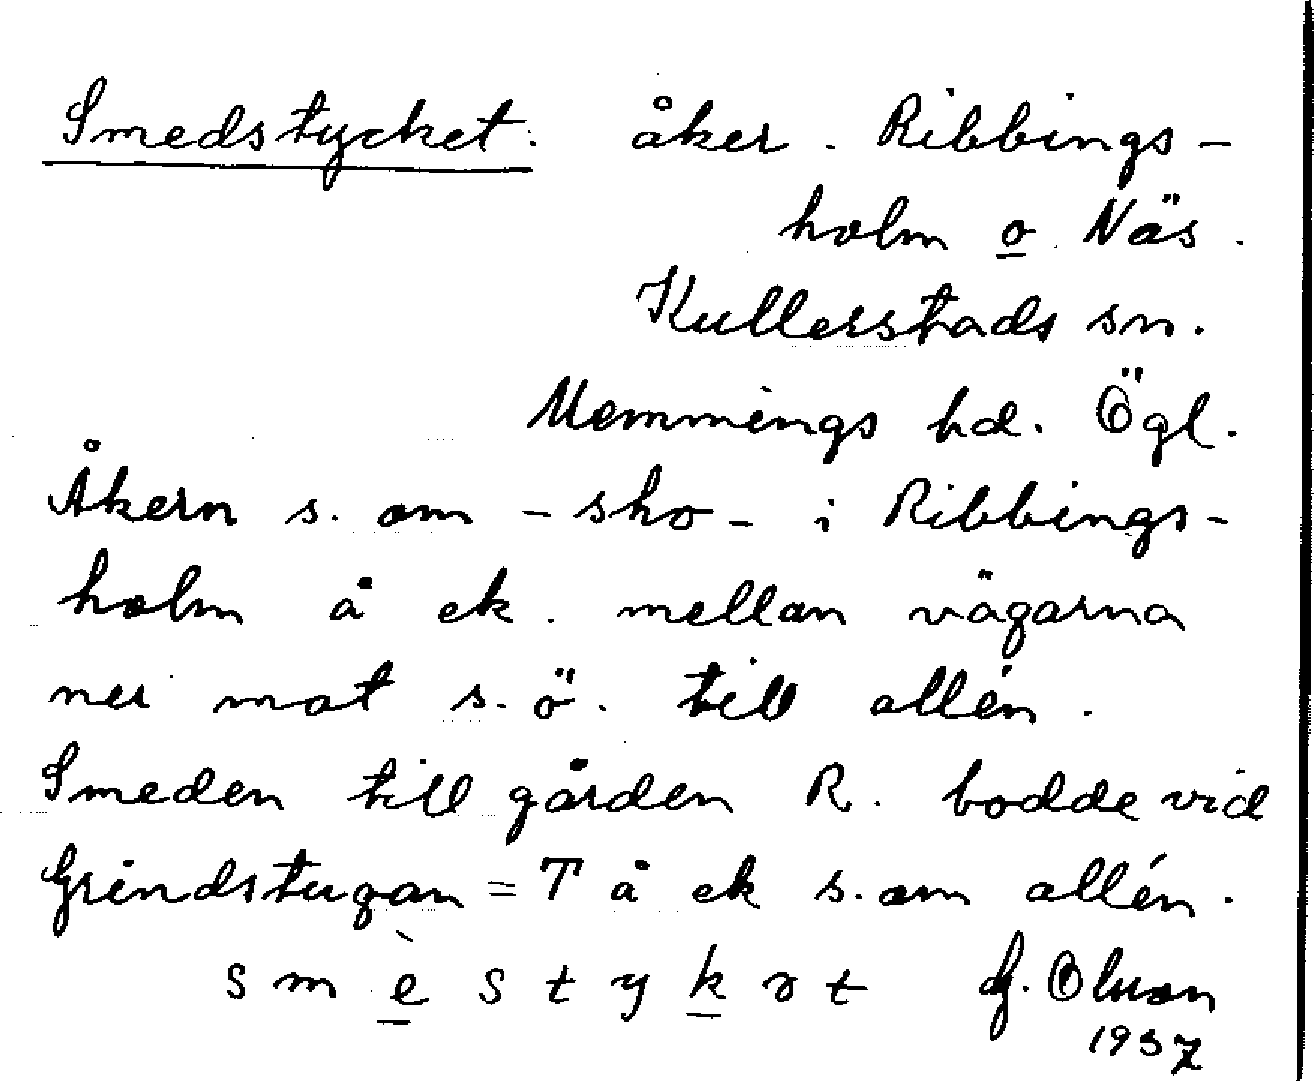 Smedstycket. åker. Ribbings-
holm o Näs.
Kullerstads sn.
Memmings hd. Ögl.
Åkern s. om -sko- i Ribbings-
holm å ek. mellan vägarna
ner mot s.ö. till allén.
Smeden till gården R. bodde vid
Grindstugan = T å ek s. om allén.
smè stykət
1937